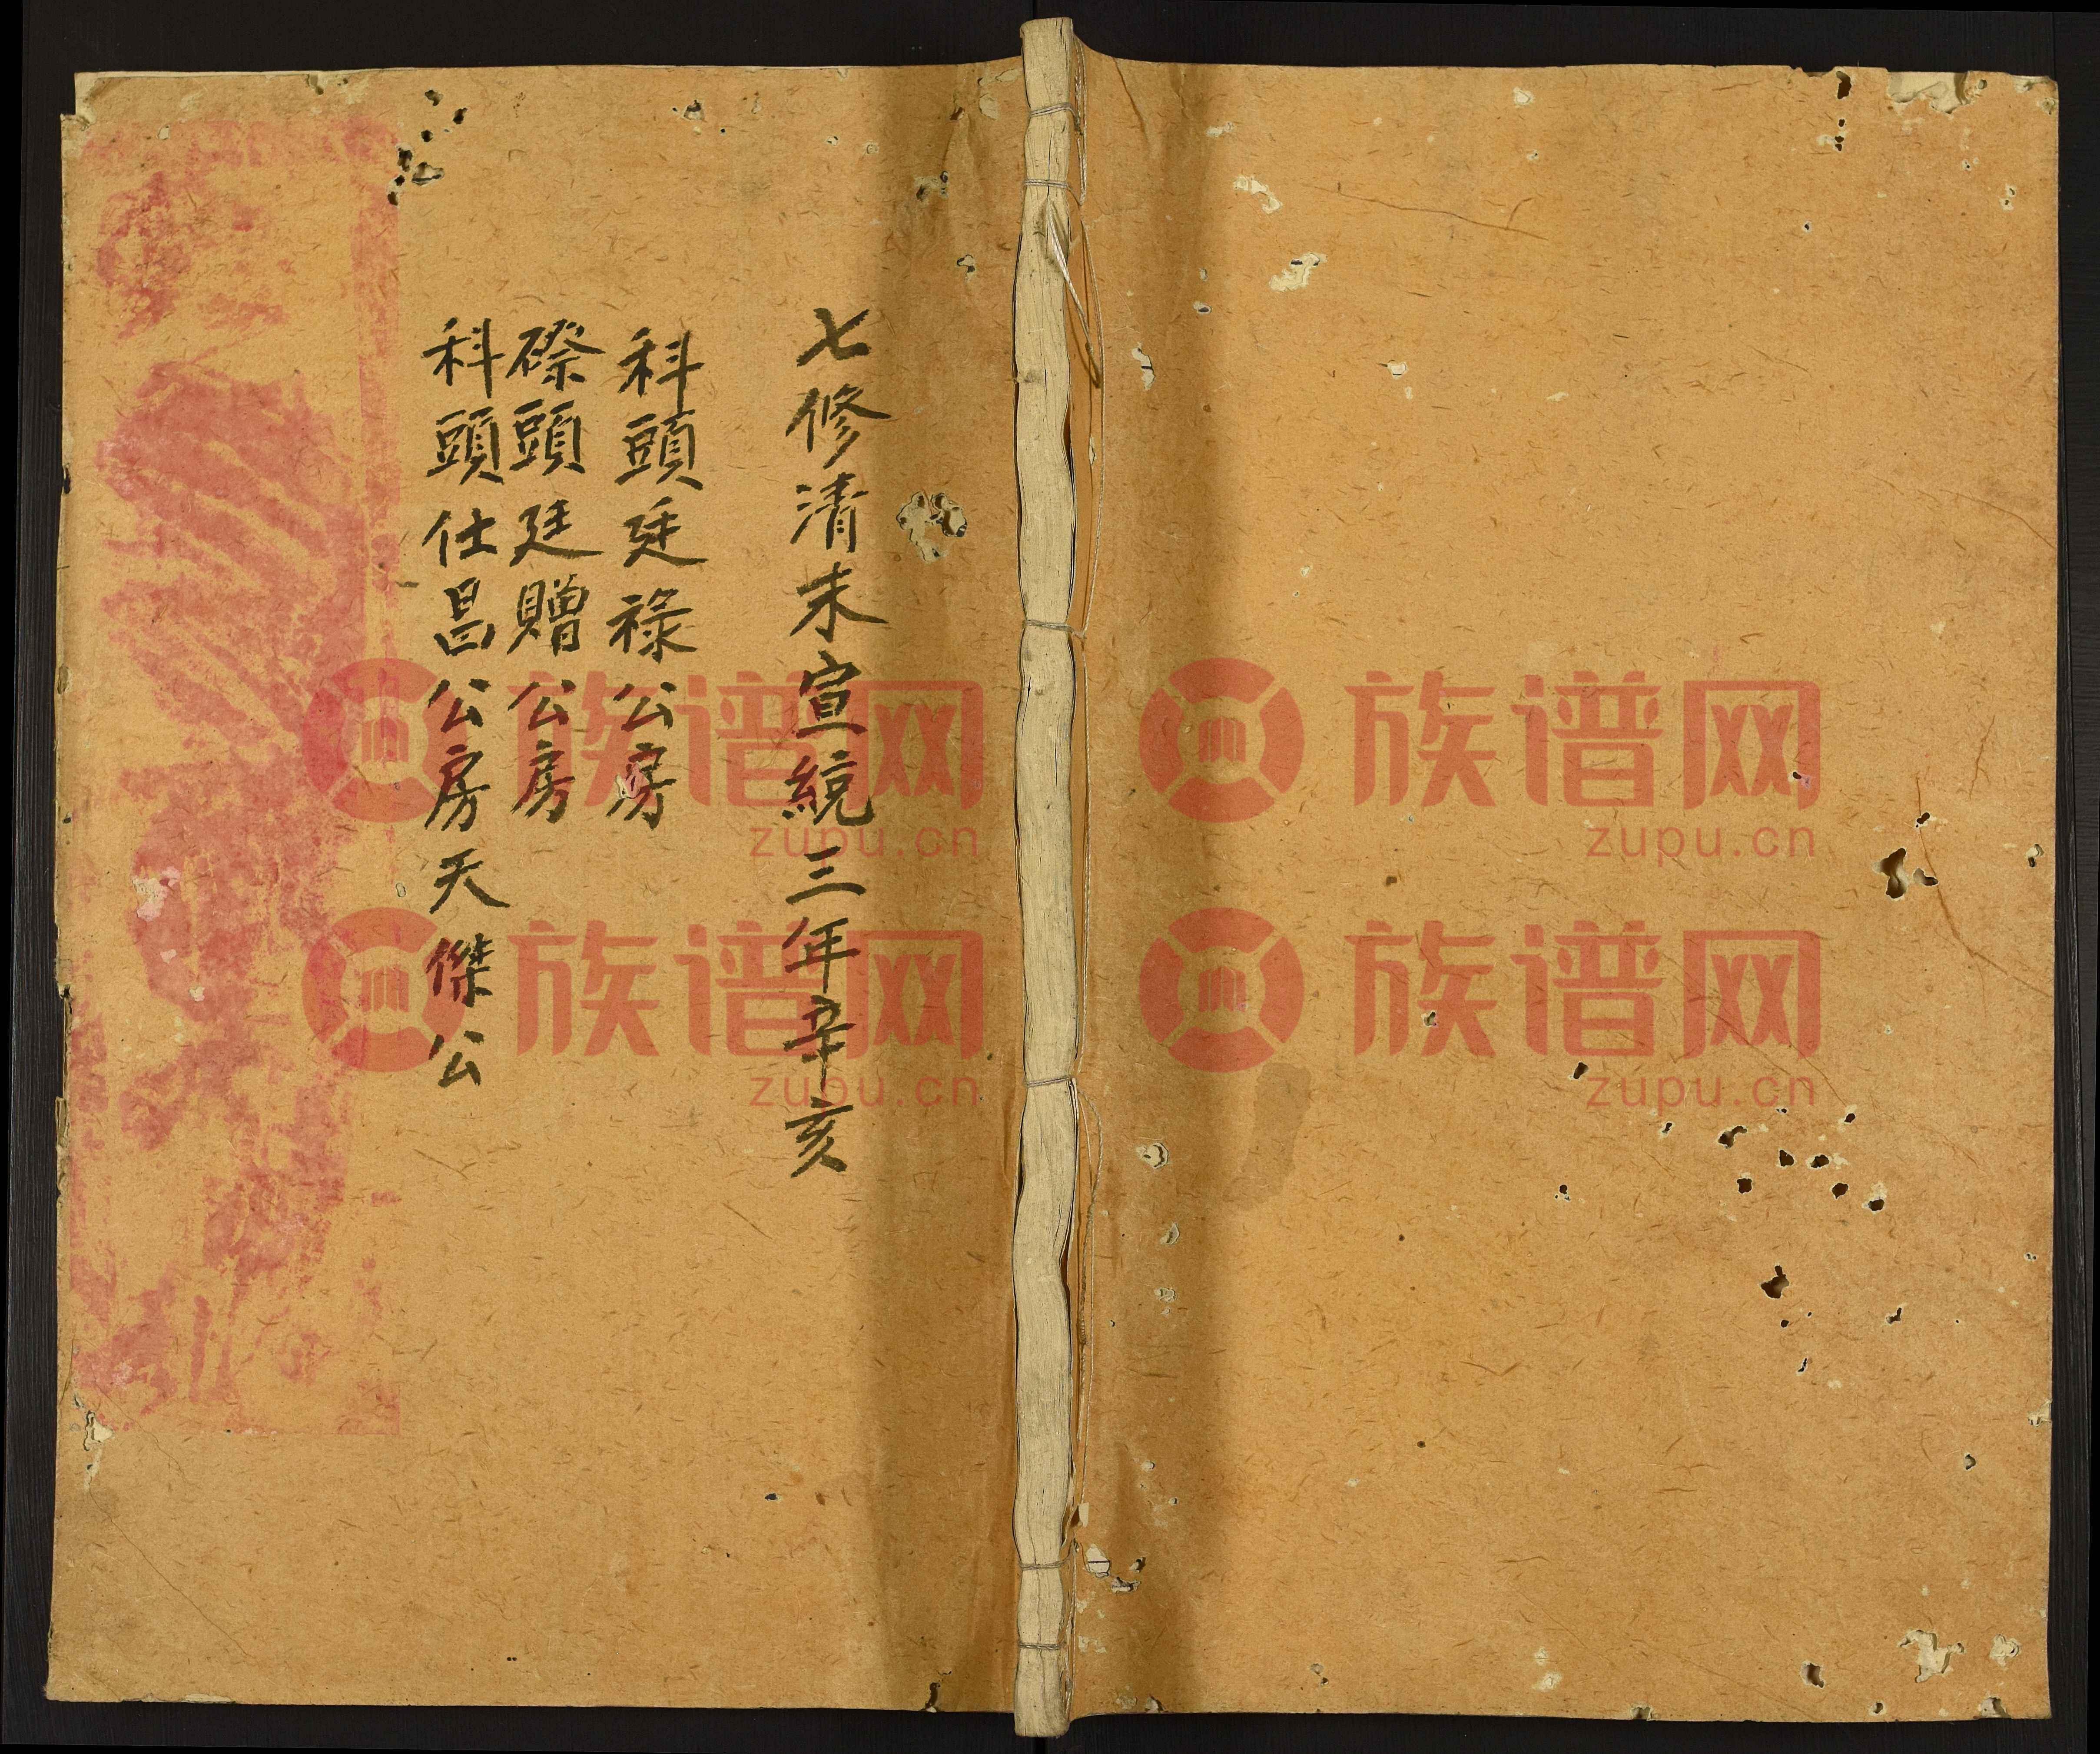 七修清末宣統三年辛亥
科頭廷祿公房
磜頭廷贈公房
科頭仕昌公房天傑公
族谱网 族谱网
zupu.cn zupu.cn
族谱网 族谱网
zupu.cn zupu.cn